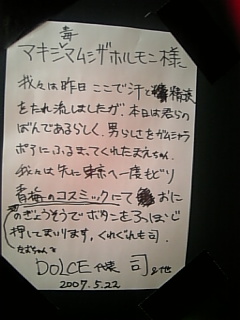 毒
マキシマムザホルモン様
我々は昨日ここで汗と精液
をたれ流しましたが、本日は君らの
ばんであるらしく、男らしさをガムシャラ
にふるまってくれたまえちゃん。
我々は先に東京へ一度もどり
青梅のコスミックにておに
のぎょうそうでボタンをろっぽんじ
押してまいります。くれぐれも司。
DOLCE 代表 司 &他
2007.5.22